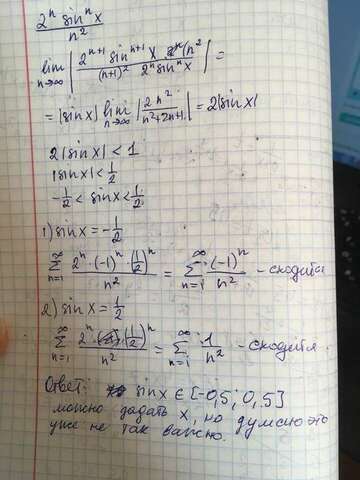 2ⁿ sinⁿ x / n²
lim n→∞ | 2ⁿ⁺¹ sinⁿ⁺¹ x (n² / (n+1)² 2ⁿ sinⁿ x | =
= |sin x| lim n→∞ | 2n² / n²+2n+1 | = 2|sin x|
2|sin x| < 1
|sin x| < 1/2
-1/2 < sin x < 1/2
1) sin x = -1/2
∞ Σ n=1 2ⁿ·(-1)ⁿ·(1/2)ⁿ / n² = ∞ Σ n=1 (-1)ⁿ / n² - сходится
2) sin x = 1/2
∞ Σ n=1 2ⁿ·(1/2)ⁿ / n² = ∞ Σ n=1 1 / n² - сходится.
Ответ: sin x ∈ [-0,5; 0,5]
можно задать x, но думаю это
уже не так важно.